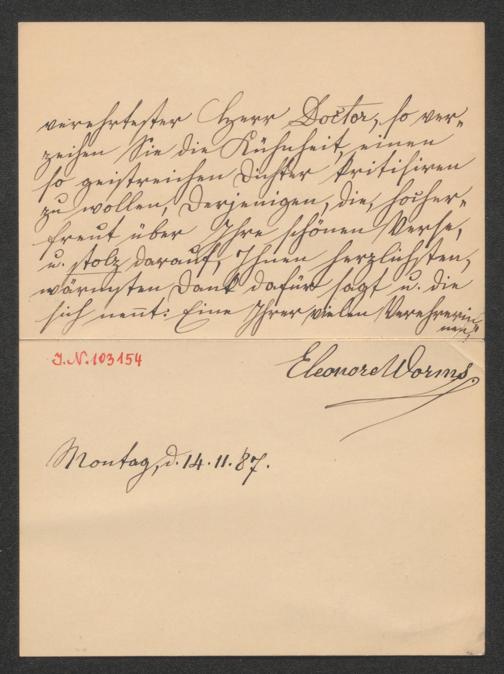 verehrtester Herr Doctor, so ver-
zeihen Sie die Kühnheit, einen
so geistreichen Dichter kritisiren
zu wollen, Derjenigen, die, hocher-
freut über Ihre schönen Verse,
u. stolz darauf, Ihnen herzlichsten,
wärmsten Dank dafür sagt u. die
sich nennt: Eine Ihrer vielen Verehrerin-
nen!
J.N. 103154
Eleonore Worms
Montag, d. 14.11.87.